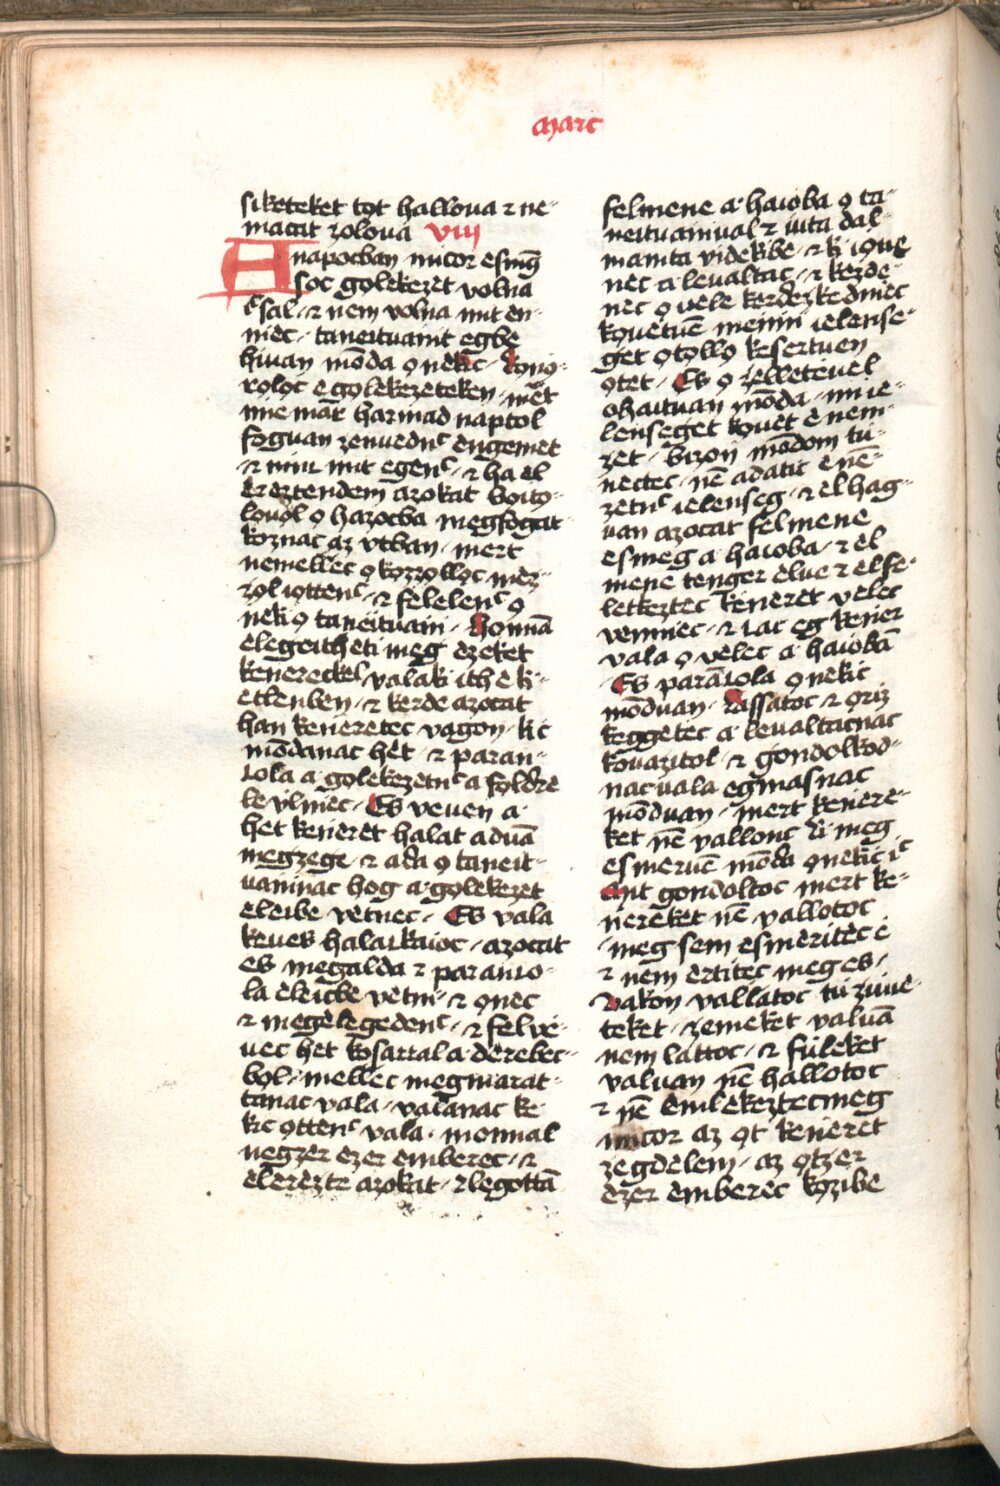 marc
siketeket tǫt halloua ⁊ ne-
macat zoloua VIII
Anapocban micor esmg̃
soc golekezet volna
c̃sal· ⁊ nem volna mit en-
niec· taneituanit egbe
hiuan mōda ǫ nekic· kǫnio-
roloc e golekezeteken· mēt
ime mar harmad naptol
fǫguan zenuednc̃ engemet
⁊ ninc mit egenc̃· ⁊ ha el
erèztendem azokat boito-
louǫl ǫ hazocba megfogat-
koznac az vtban· mert
nemellec ǫkozzolloc mez-
zol iottenc̃· ⁊ felelenc̃ ǫ
neki ǫ taneituani· honnā
elegeitheti meg ezeket
kènerèckel valaki ith e ki-
etlenben· ⁊ kerde azocat
han kèneretec vagon· kic
mōdanac hèt· ⁊ paran-
ǐola a golekezetnc̃ a foldre
le vlniec· Es veuen a·
hèt kènerèt halat aduā
megzege· ⁊ ada ǫ taneit-
uaninac hog a golekezet
èleibe vètnec· Es vala
keues halackaioc· azocat
es megalda ⁊ paranǐo-
la èleicbe vètni· ⁊ ǫnec
⁊ megèlegedenc̃· ⁊ felvè-
uec hèt kǫsarral a dèrebec-
bǫl· mellec megmarat-
tanac vala· valanac kè-
kic ǫttenc̃ vala· monnal
negzer ezer emberec· ⁊
èlèrèzte azokat· ⁊ legottā
felmene a· haioba ǫ ta-
neituaniual ⁊ iuta dal-
manita videkbe· ⁊ ki iǫuè-
nec a leualtac· ⁊ kezde-
nec ǫ vèle kerdezkedniec
kouetuē meniñ ielense-
get ǫtǫllǫ kesertuen
ǫtet· Es ǫ zèlletèuel
ohaituan mōda· mi ie-
lenseget kouèt e nem-
zet· bizoñ mōdom tu-
nèctec· nē adatic e nē-
zetnc̃ ielenseg· ⁊ el hag-
uan azocat felmene
esmeg a haioba· ⁊ èl
mene tenger èlue ⁊ elfe-
letkeztec kènerèt vèlec
venniec· ⁊ cac eg kèñer
vala ǫ vèlec a· haiobā
Es parāǐola ǫ nekic
mōduan· lassatoc ⁊ ǫriz-
keggètec a leualtacnac
kouazitol· ⁊ gondolkod-
nac vala egmasnac
mōduan· mert kènere-
ket nē vallonc ki meg
esmeruē mōda ǫ nekic ic̃
mit gondoltoc mert kè-
nerèket nē vallotoc
meg sem esmeritèc è
⁊ nem ertitèc meg es·
vakon vallatoc tu ziue-
tèket· zèmeket valuā
nem lattoc· ⁊ fuleket
valuan nē hallotoc
⁊ nē èmlekeztecmeg
micor az ǫt kènerèt
zegdelem· az ǫtzer
ezer emberec kozibe